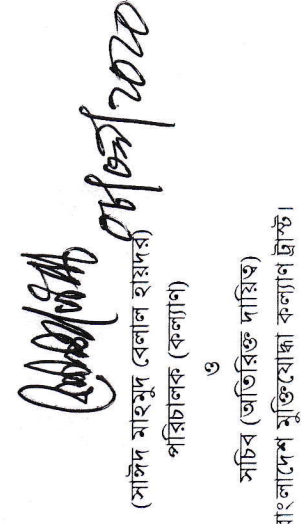 ০৮/০৯/২০২০
(সাঈদ মাহমুদ বেলাল হায়দর)
পরিচালক (কল্যাণ)
ও
সচিব (অতিরিক্ত দায়িত্ব)
বাংলাদেশ মুক্তিযোদ্ধা কল্যাণ ট্রাস্ট।